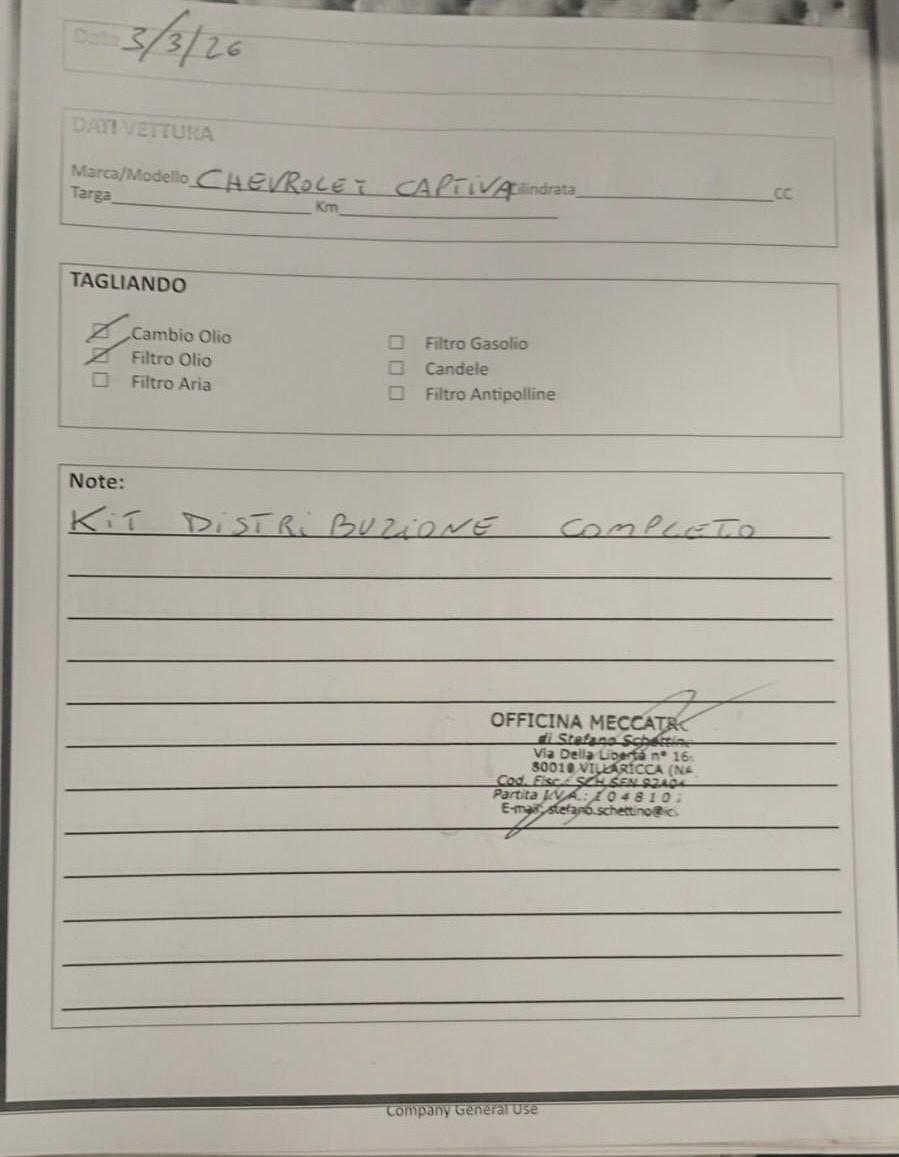 Data 3/3/26
DATI VETTURA
Marca/Modello CHEVROLET CAPTIVA Cilindrata CC
Targa Km
TAGLIANDO
Cambio Olio
Filtro Olio
Filtro Aria
Filtro Gasolio
Candele
Filtro Antipolline
Note:
KIT DISTRIBUZIONE COMPLETO
OFFICINA MECCATR
di Stefano Schettin
Via Della Libertà n° 16
80010 VILLARICCA (NA
Cod. Fisc.: SCH SFN 92A04
Partita I.V.A.: 104810
E-mail: stefano.schettino@ic
Company General Use